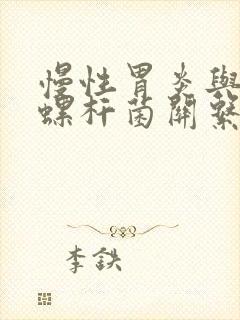 慢性胃炎與
螺杆菌關繫
李鉄